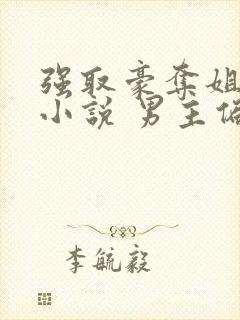 强取豪夺姐
小说 男主偏
李毓毅